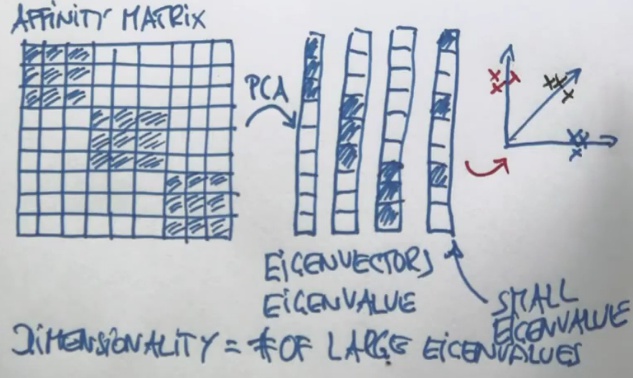 AFFINITY MATRIX
PCA
EIGENVECTORS
EIGENVALUE
SMALL
EIGENVALUE
DIMENSIONALITY = # OF LARGE EIGENVALUES